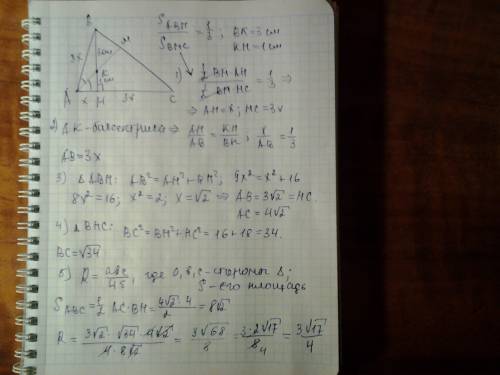 B
S_ABH / S_BHC = 1/3 ; BK = 3 см
KH = 1 см
3x
3см
M
K
1см
A x H 3x C
1) (1/2 BH·AH) / (1/2 BH·HC) = 1/3 ⇒
⇒ AH = x; HC = 3x
2) AK - биссектриса ⇒ AH/AB = KH/BK ; x/AB = 1/3
AB = 3x
3) △ABH: AB² = AH² + BH²; 9x² = x² + 16
8x² = 16; x² = 2; x = √2 ⇒ AB = 3√2 = HC.
AC = 4√2
4) △BHC: BC² = BH² + HC² = 16 + 18 = 34.
BC = √34
5) R = abc/4S, где a, b, c - стороны △;
S - его площадь
S_ABC = 1/2 AC·BH = (4√2·4)/2 = 8√2
R = (3√2·√34·4√2)/(4·8√2) = 3√68/8 = 3·2√17/8 4 = 3√17/4